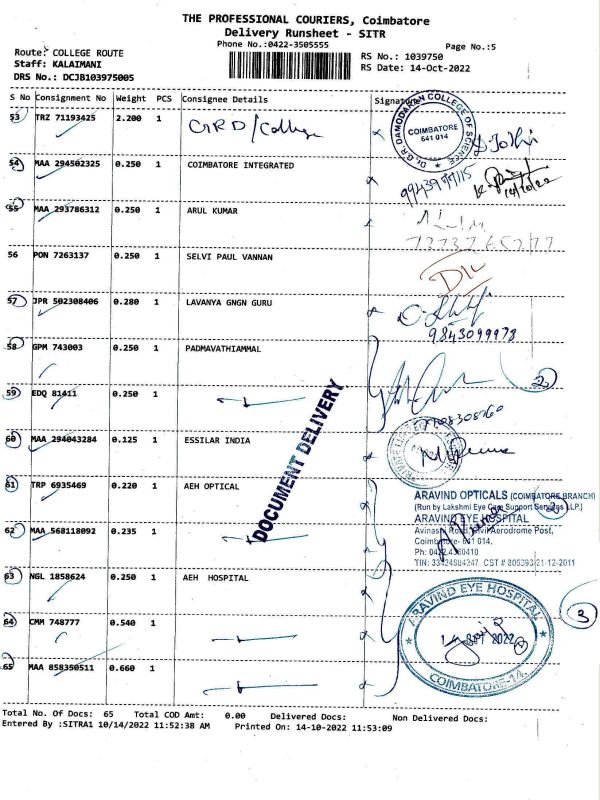 THE PROFESSIONAL COURIERS, Coimbatore
Delivery Runsheet - SITR
Phone No.:0422-3505555
Page No.:5
Route: COLLEGE ROUTE
Staff: KALAIMANI
DRS No.: DCJB103975005
RS No.: 1039750
RS Date: 14-Oct-2022
S No Consignment No Weight PCS Consignee Details Signature
53 TRZ 71193425 2.200 1 GRD/College
Dr.G.R. DAMODARAN COLLEGE OF SCIENCE
COIMBATORE
641 014
54 MAA 294502325 0.250 1 COIMBATORE INTEGRATED
14/10/22
55 MAA 293786312 0.250 1 ARUL KUMAR
56 PON 7263137 0.250 1 SELVI PAUL VANNAN
57 JPR 502308406 0.280 1 LAVANYA GNGN GURU
9843099978
58 GPM 743003 0.250 1 PADMAVATHIAMMAL
2
59 EDQ 81411 0.250 1
60 MAA 294043284 0.125 1 ESSILAR INDIA
DOCUMENT DELIVERY
61 TRP 6935469 0.220 1 AEH OPTICAL
ARAVIND OPTICALS (COIMBATORE BRANCH)
(Run by Lakshmi Eye Care Support Services LLP.)
ARAVIND EYE HOSPITAL
Avinashi Road, Civil Aerodrome Post,
Coimbatore- 641 014.
Ph: 0422 4360410
62 MAA 568118092 0.235 1
63 NGL 1858624 0.250 1 AEH HOSPITAL
ARAVIND EYE HOSPITAL
3
64 CMM 748777 0.540 1
2022
COIMBATORE-14.
65 MAA 858350511 0.660 1
Total No. Of Docs: 65 Total COD Amt: 0.00 Delivered Docs: Non Delivered Docs:
Entered By :SITRA1 10/14/2022 11:52:38 AM Printed On: 14-10-2022 11:53:09